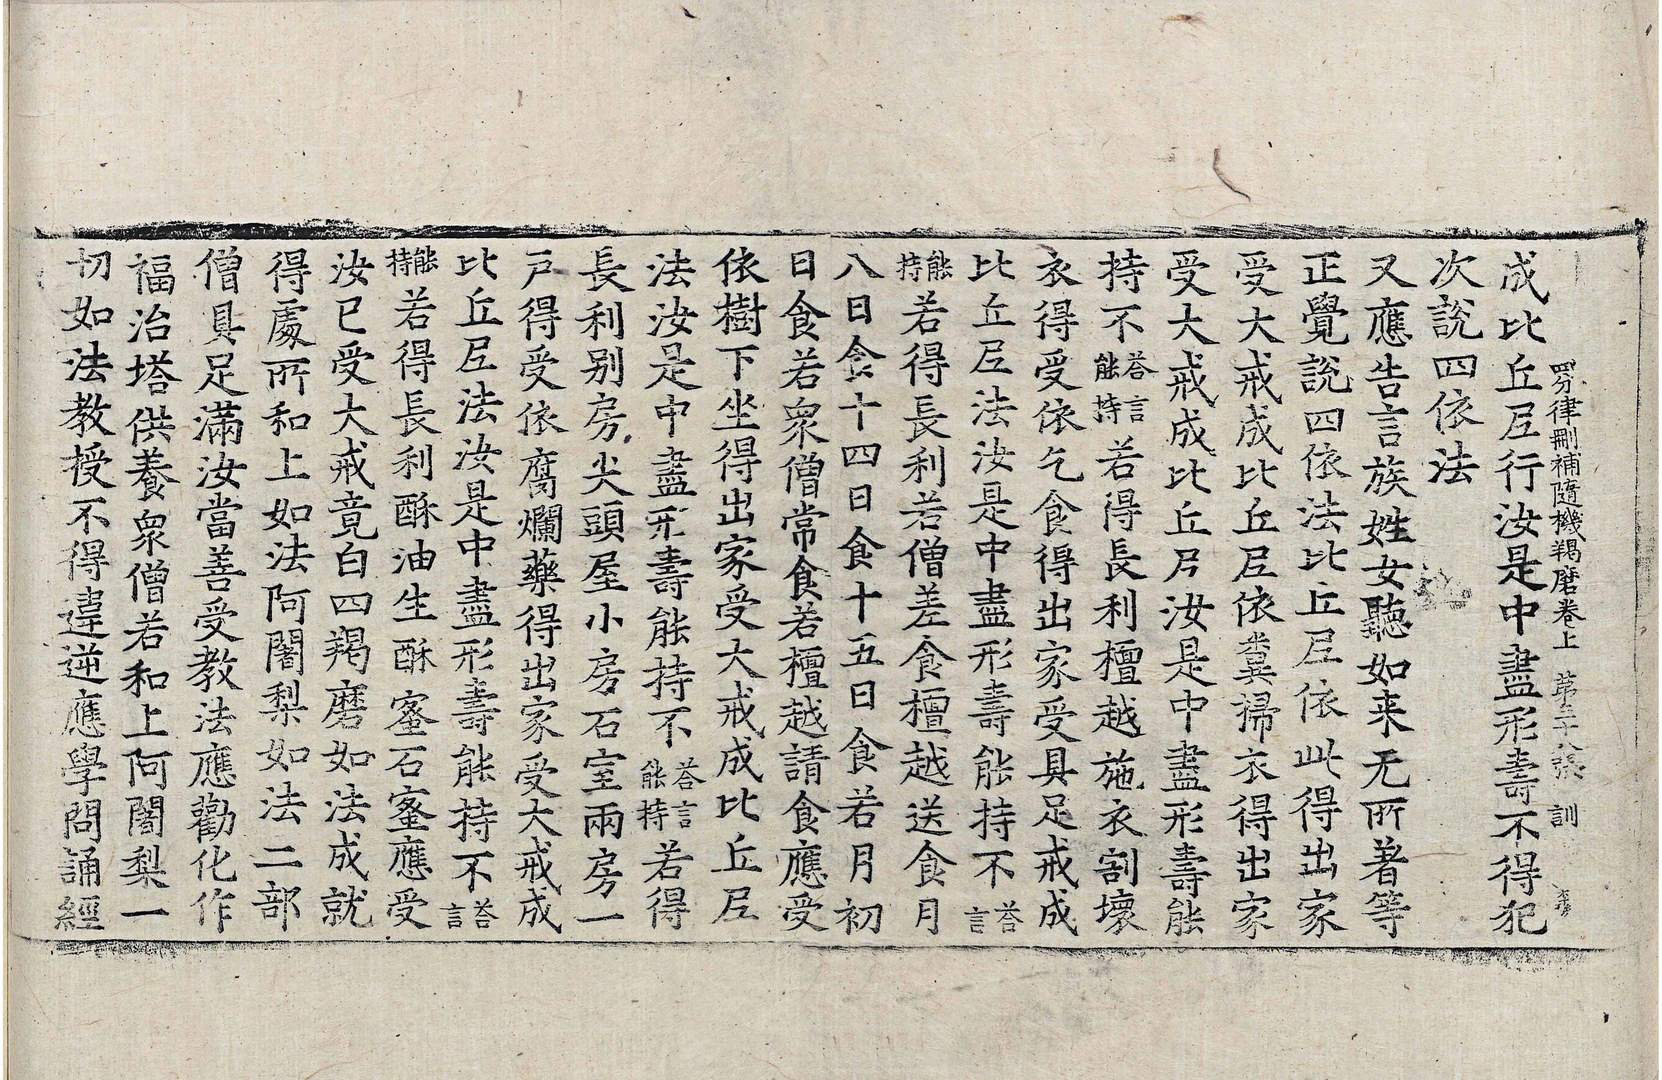 四分律刪補隨機羯磨卷上 第三十八張 訓
成比丘尼行汝是中盡形壽不得犯
次說四依法
又應告言族姓女聽如来无所著等
正覺說四依法比丘尼依此得出家
受大戒成比丘尼依糞掃衣得出家
受大戒成比丘尼汝是中盡形壽能
持不答言能持若得長利檀越施衣割壞
衣得受依乞食得出家受具足戒成
比丘尼法汝是中盡形壽能持不答言
能持若得長利若僧差食檀越送食月
八日食十四日食十五日食若月初
日食若眾僧常食若檀越請食應受
依樹下坐得出家受大戒成比丘尼
法汝是中盡形壽能持不答言能持若得
長利別房尖頭屋小房石室兩房一
戶得受依腐爛藥得出家受大戒成
比丘尼法汝是中盡形壽能持不答言
能持若得長利酥油生酥蜜石蜜應受
汝已受大戒竟白四羯磨如法成就
得處所和上如法阿闍梨如法二部
僧具足滿汝當善受教法應勸化作
福治塔供養眾僧若和上阿闍梨一
切如法教授不得違逆應學問誦經